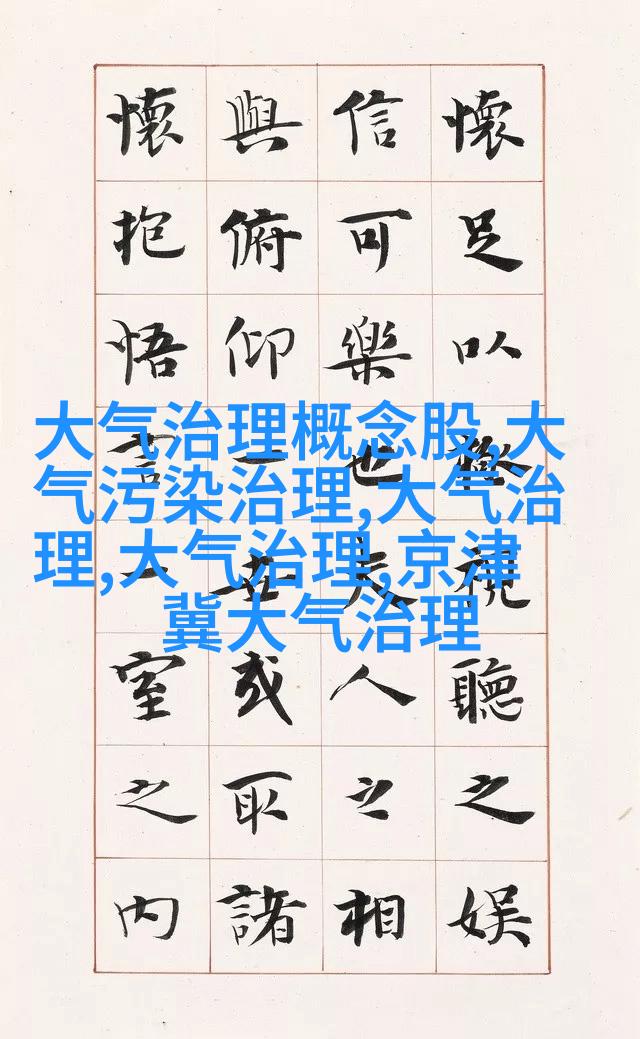 懷足以極視聽之娛
信可樂也夫人之相
與俯仰一世或取諸
懷抱悟言一室之內
大气治理概念股,大
气污染治理,大气治
理,大气治理,京津
冀大气治理